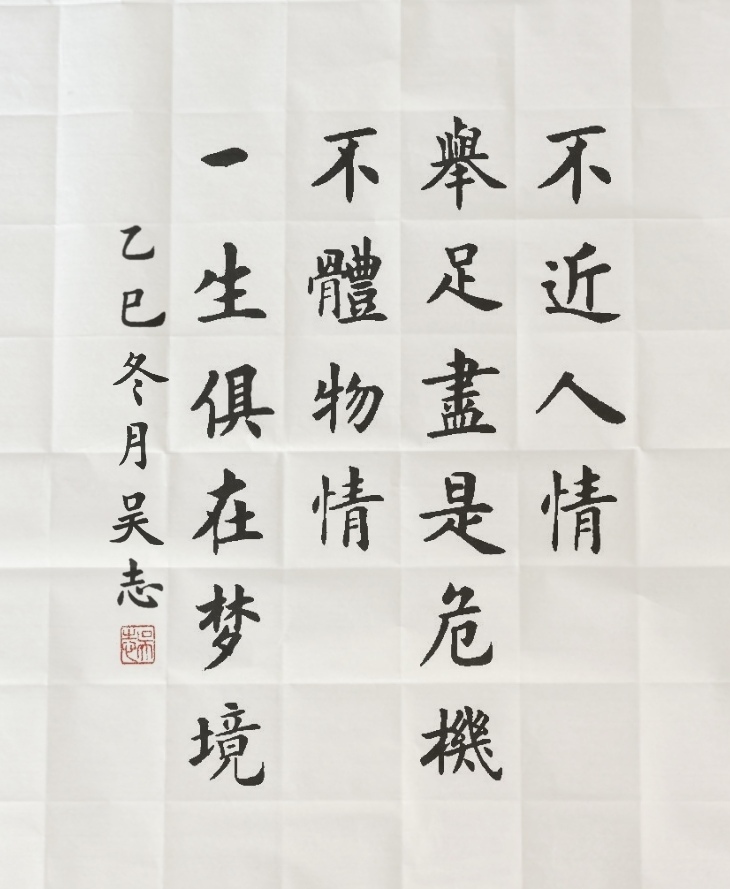 不近人情
舉足盡是危機
不體物情
一生俱在梦境
乙巳冬月吴志
吴志